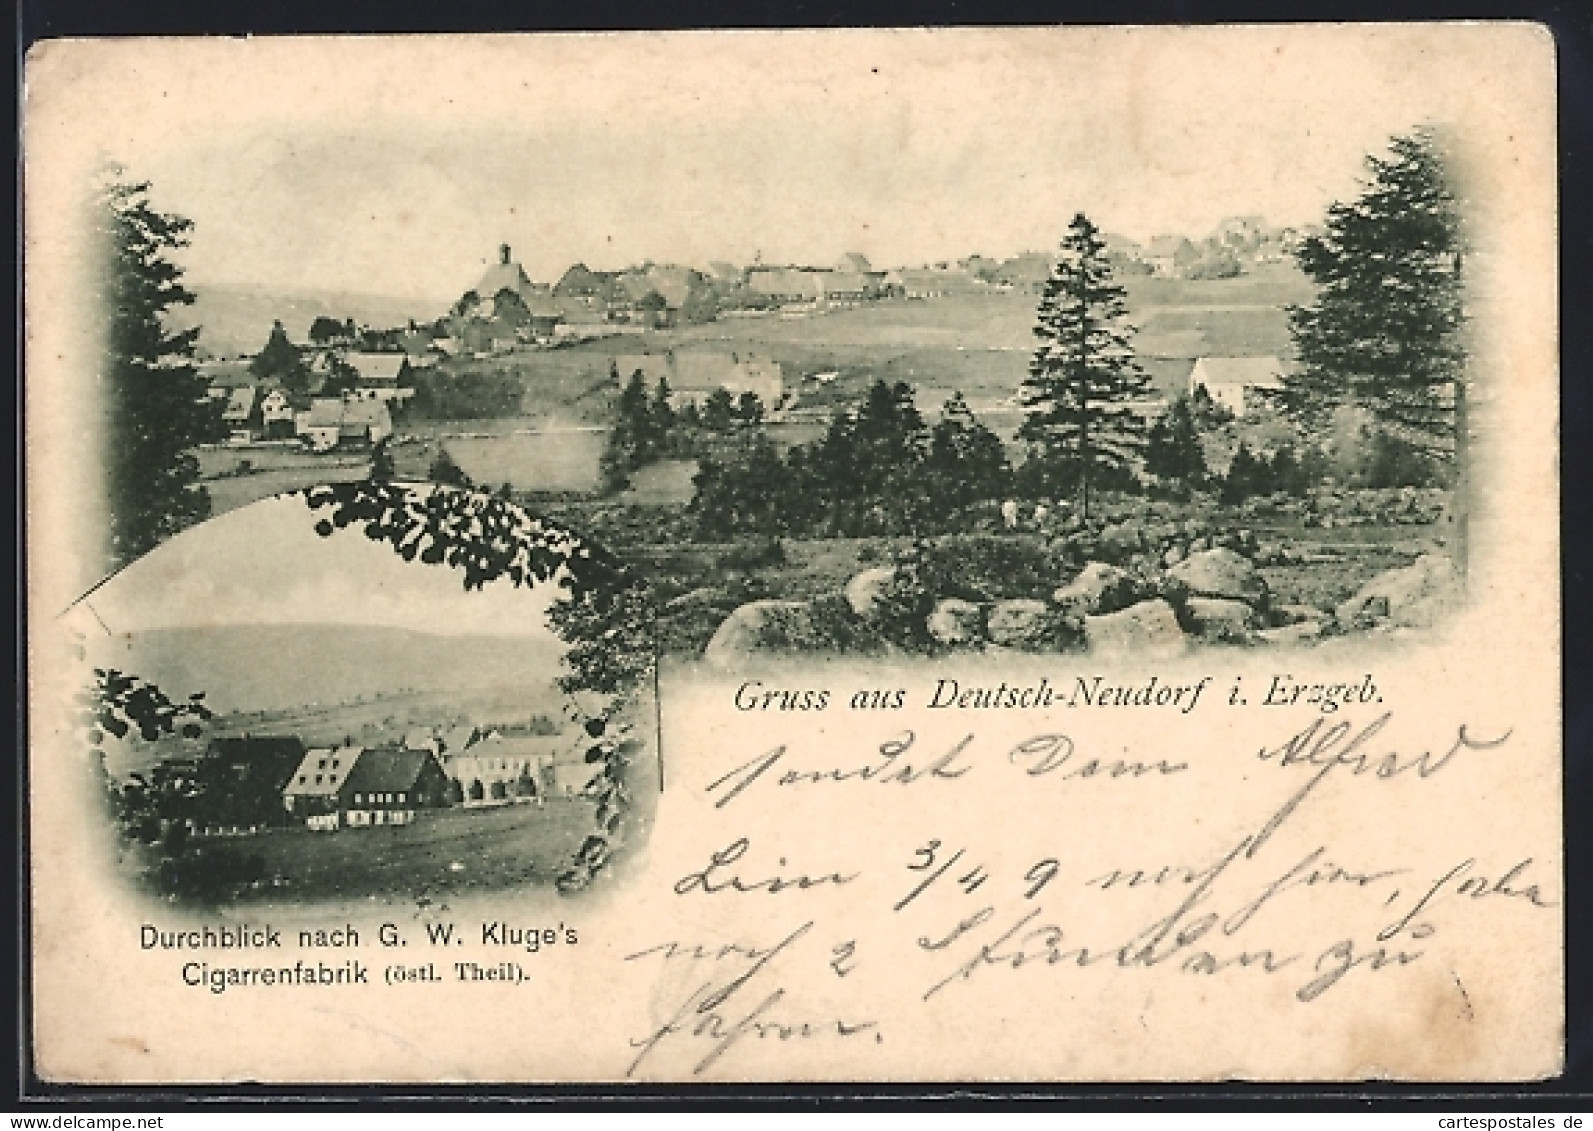 Gruss aus Deutsch-Neudorf i. Erzgeb.
sendet Dein Alfred
Bin 3/4 9 noch hier, habe
noch 2 Stunden zu
fahren.
Durchblick nach G. W. Kluge's
Cigarrenfabrik (östl. Theil).
cartespostales de